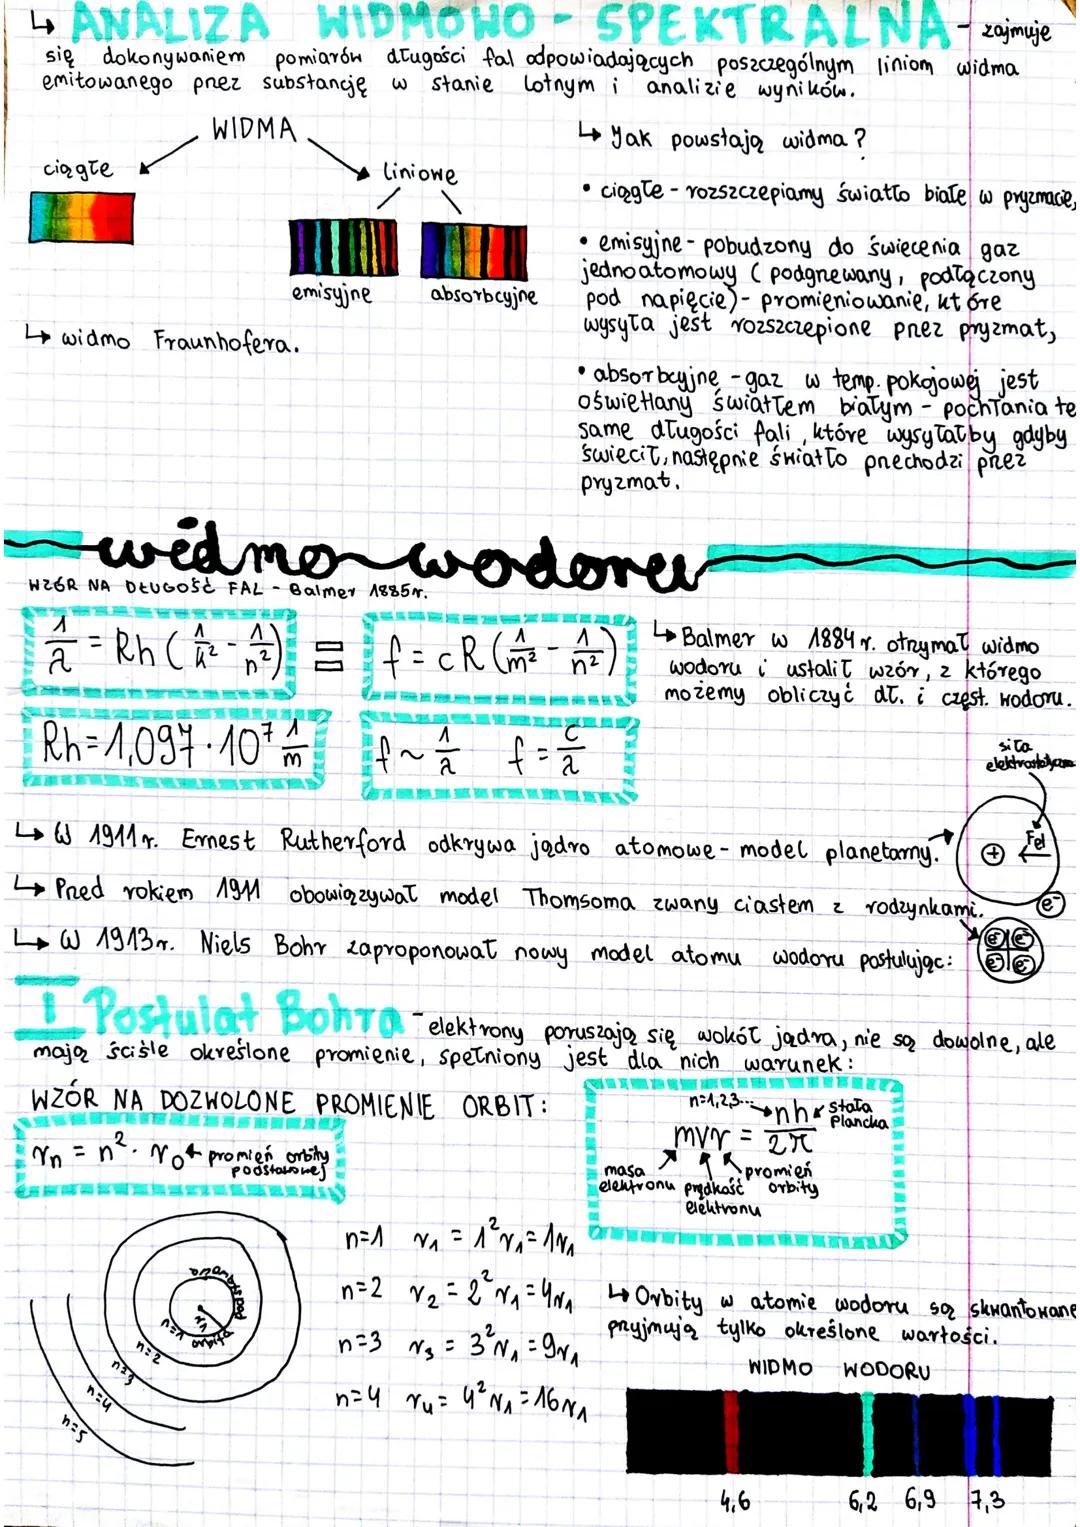 ↳ ANALIZA WIDMOWO - SPEKTRALNA - zajmuje
się dokonywaniem pomiarów długości fal odpowiadających poszczególnym liniom widma
emitowanego przez substancję w stanie lotnym i analizie wyników.
WIDMA
ciągłe
liniowe
emisyjne
absorbcyjne
↳ widmo Fraunhofera.
↳ Jak powstają widma?
• ciągłe - rozszczepiamy światło białe w pryzmacie,
• emisyjne - pobudzony do świecenia gaz
jednoatomowy (podgrzewany, podłączony
pod napięcie) - promieniowanie, które
wysyła jest rozszczepione przez pryzmat,
• absorbcyjne - gaz w temp. pokojowej jest
oświetlany światłem białym - pochłania te
same długości fali, które wysyłałby gdyby
świecił, następnie światło przechodzi przez
pryzmat.
widmo wodoru
WZÓR NA DŁUGOŚĆ FAL - Balmer 1885r.
1/λ = Rh (1/k² - 1/n²) = f = cR (1/m² - 1/n²)
Rh = 1,097 · 10⁷ 1/m
f ~ 1/λ f = c/λ
↳ Balmer w 1884 r. otrzymał widmo
wodoru i ustalił wzór, z którego
możemy obliczyć dł. i częst. wodoru.
siła
elektrostatyczna
Fel
+
e⁻
↳ W 1911r. Ernest Rutherford odkrywa jądro atomowe - model planetarny.
↳ Przed rokiem 1911 obowiązywał model Thomsoma zwany ciastem z rodzynkami.
e⁻ e⁻
e⁻ e⁻
↳ W 1913r. Niels Bohr zaproponował nowy model atomu wodoru postulując:
I Postulat Bohra - elektrony poruszają się wokół jądra, nie są dowolne, ale
mają ściśle określone promienie, spełniony jest dla nich warunek:
WZÓR NA DOZWOLONE PROMIENIE ORBIT:
rn = n² · r₀ promień orbity
podstawowej
n=1,2,3...
mvr = nh/2π
stała
Plancka
masa
elektronu
prędkość
elektronu
promień
orbity
orbita
podstawowa
r₁
n=1
n=2
n=3
n=4
n=5
n=1 r₁ = 1²r₁ = 1r₁
n=2 r₂ = 2²r₁ = 4r₁
n=3 r₃ = 3²r₁ = 9r₁
n=4 r₄ = 4²r₁ = 16r₁
↳ Orbity w atomie wodoru są skwantowane
przyjmują tylko określone wartości.
WIDMO WODORU
4,6 6,2 6,9 7,3